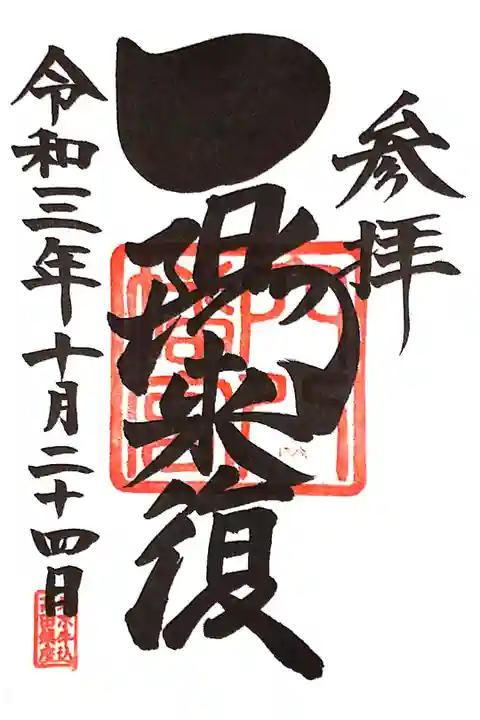 参拝
一陽来復
令和三年十月二十四日